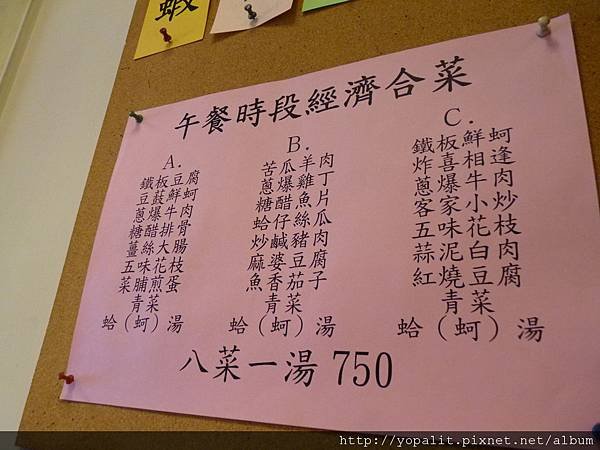 蝦
午餐時段經濟合菜
A.
鐵板豆腐
豆鼓鮮蚵
蔥爆牛肉
糖醋排骨
薑絲大腸
五味花枝
菜脯煎蛋
青菜
蛤(蚵)湯
B.
苦瓜羊肉
蔥爆雞丁
糖醋魚片
蛤仔絲瓜
炒鹹豬肉
麻婆豆腐
魚香茄子
青菜
蛤(蚵)湯
C.
鐵板鮮蚵
炸喜相逢
蔥爆牛肉
客家小炒
五味花枝
蒜泥白肉
紅燒豆腐
青菜
蛤(蚵)湯
八菜一湯 750
http://yopalit.pixnet.net/album